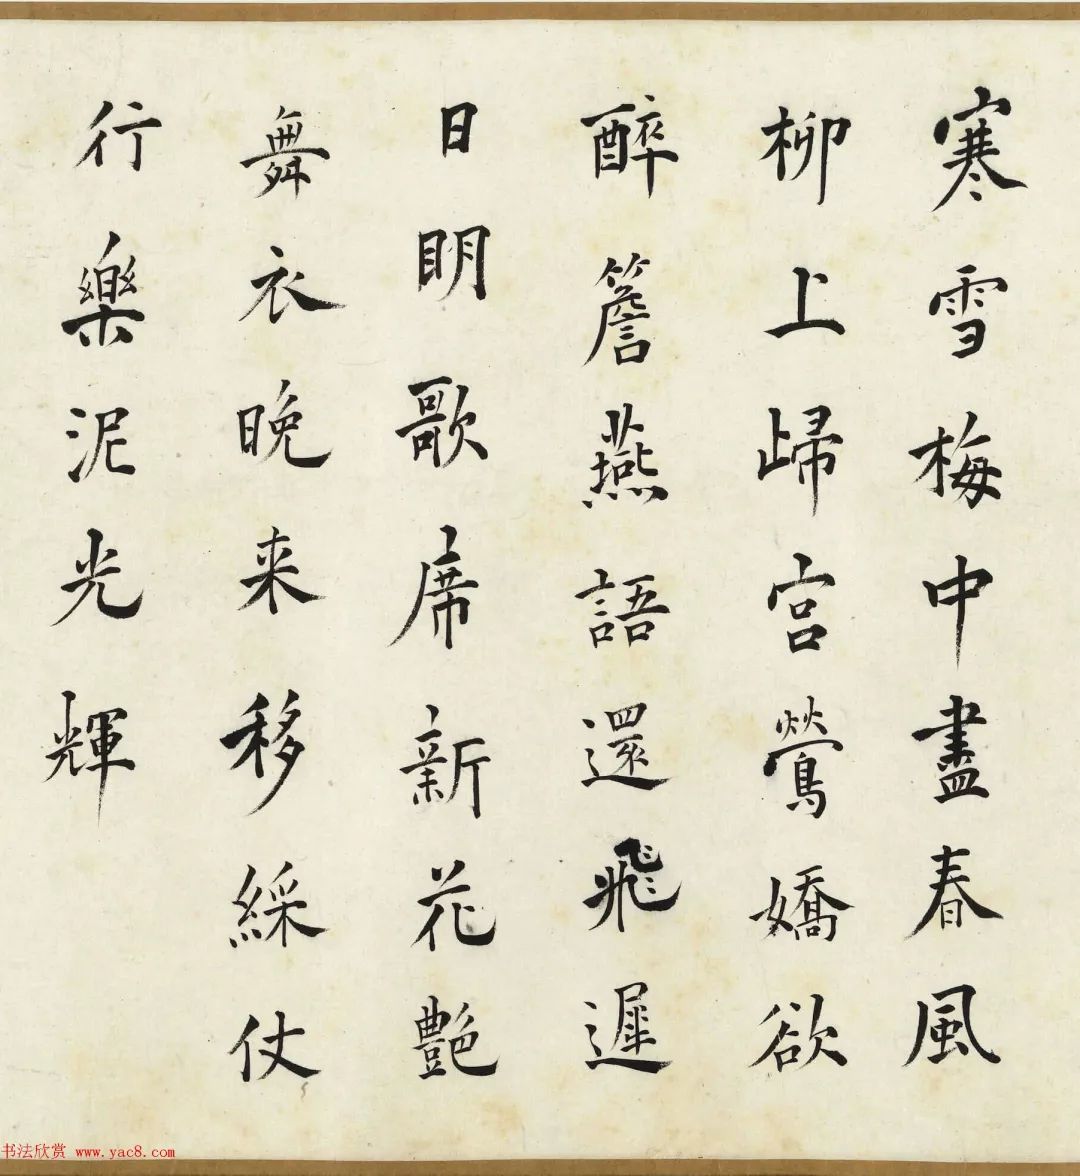 寒雪梅中盡春風
柳上歸宮鶯嬌欲
醉簷燕語還飛遲
日明歌席新花艷
舞衣晚来移綵仗
行樂泥光輝
书法欣赏 www.yac8.com